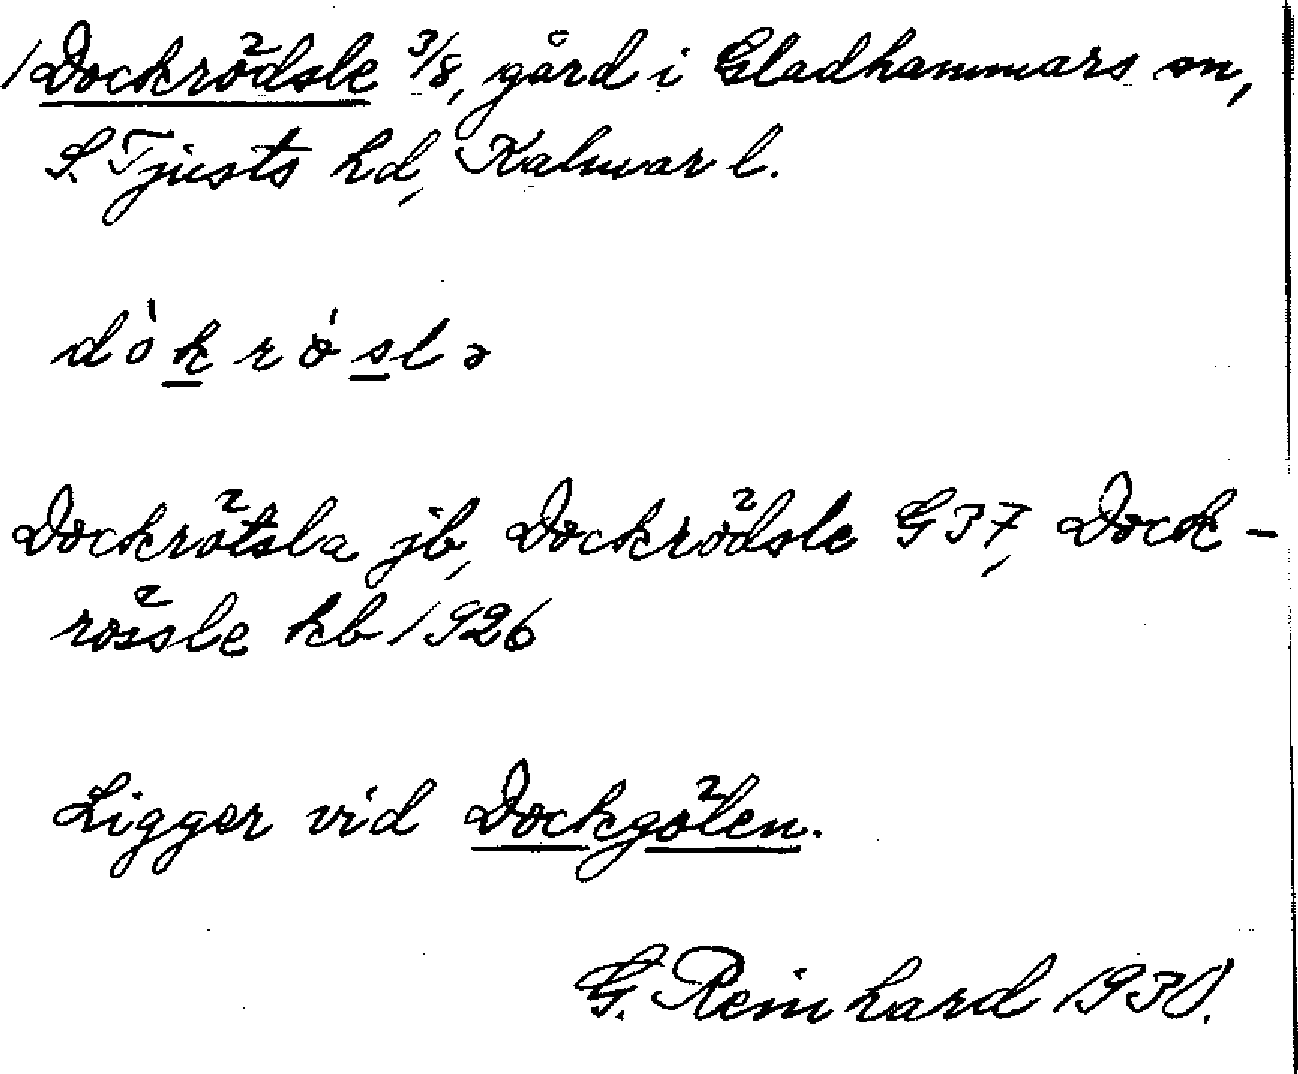 1 Dockrödsle 3/8, gård i Gladhammars sn,
S. Tjusts hd, Kalmar l.
dò k r ö́ s l ə
Dockrötsla jb, Dockrödsle G 37, Dock-
rössle kb 1926
Ligger vid Dockgölen.
G. Reinhard 1930.